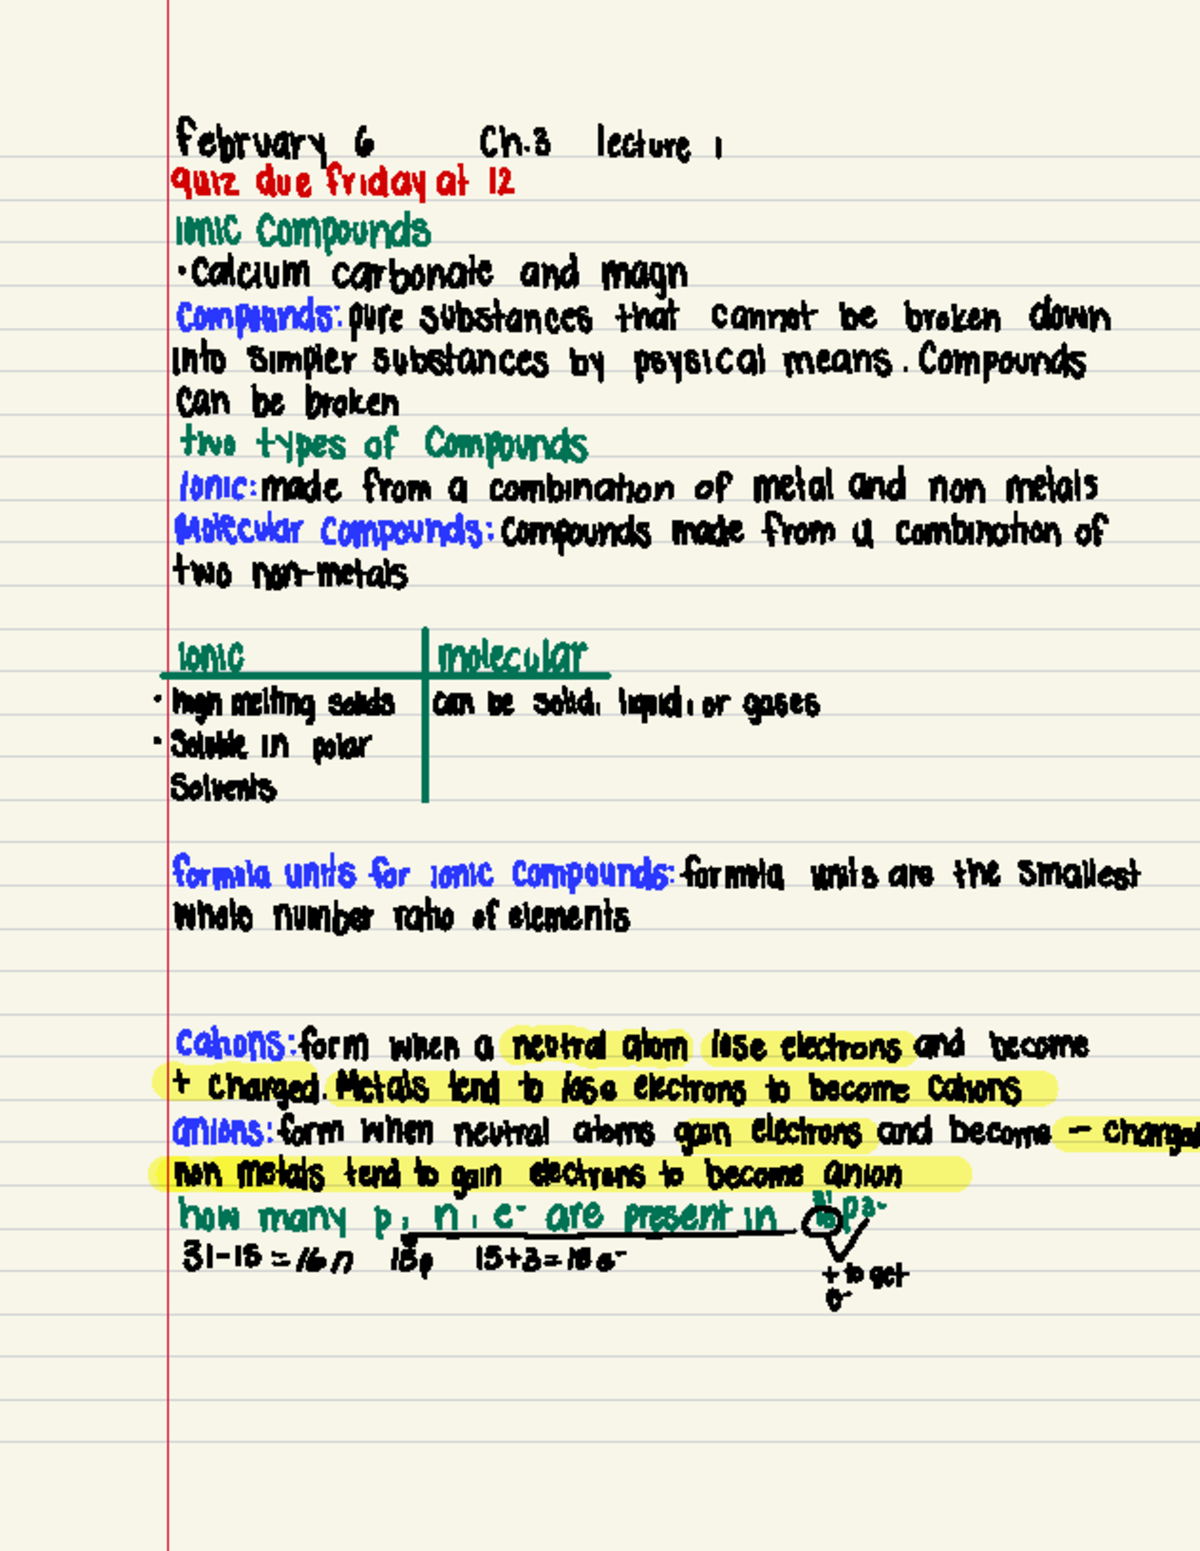 February 6 Ch.3 lecture 1
quiz due friday at 12
Ionic Compounds
• Calcium carbonate and magn
Compounds: pure substances that cannot be broken down
into simpler substances by psysical means. Compounds
can be broken
two types of Compounds
Ionic: made from a combination of metal and non metals
Molecular Compounds: Compounds made from a combination of
two non-metals
Ionic molecular
• high melting solids can be solid, liquid, or gases
• Soluble in polar
Solvents
formula units for ionic compounds: formula units are the smallest
whole number ratio of elements
cations: form when a neutral atom lose electrons and become
+ charged. Metals tend to lose electrons to become cations
anions: form when neutral atoms gain electrons and become – charged
non metals tend to gain electrons to become anion
how many p, n, e⁻ are present in ³¹₁₅P³⁻
31-15=16n 15p 15+3=18e⁻
+ to get
e⁻